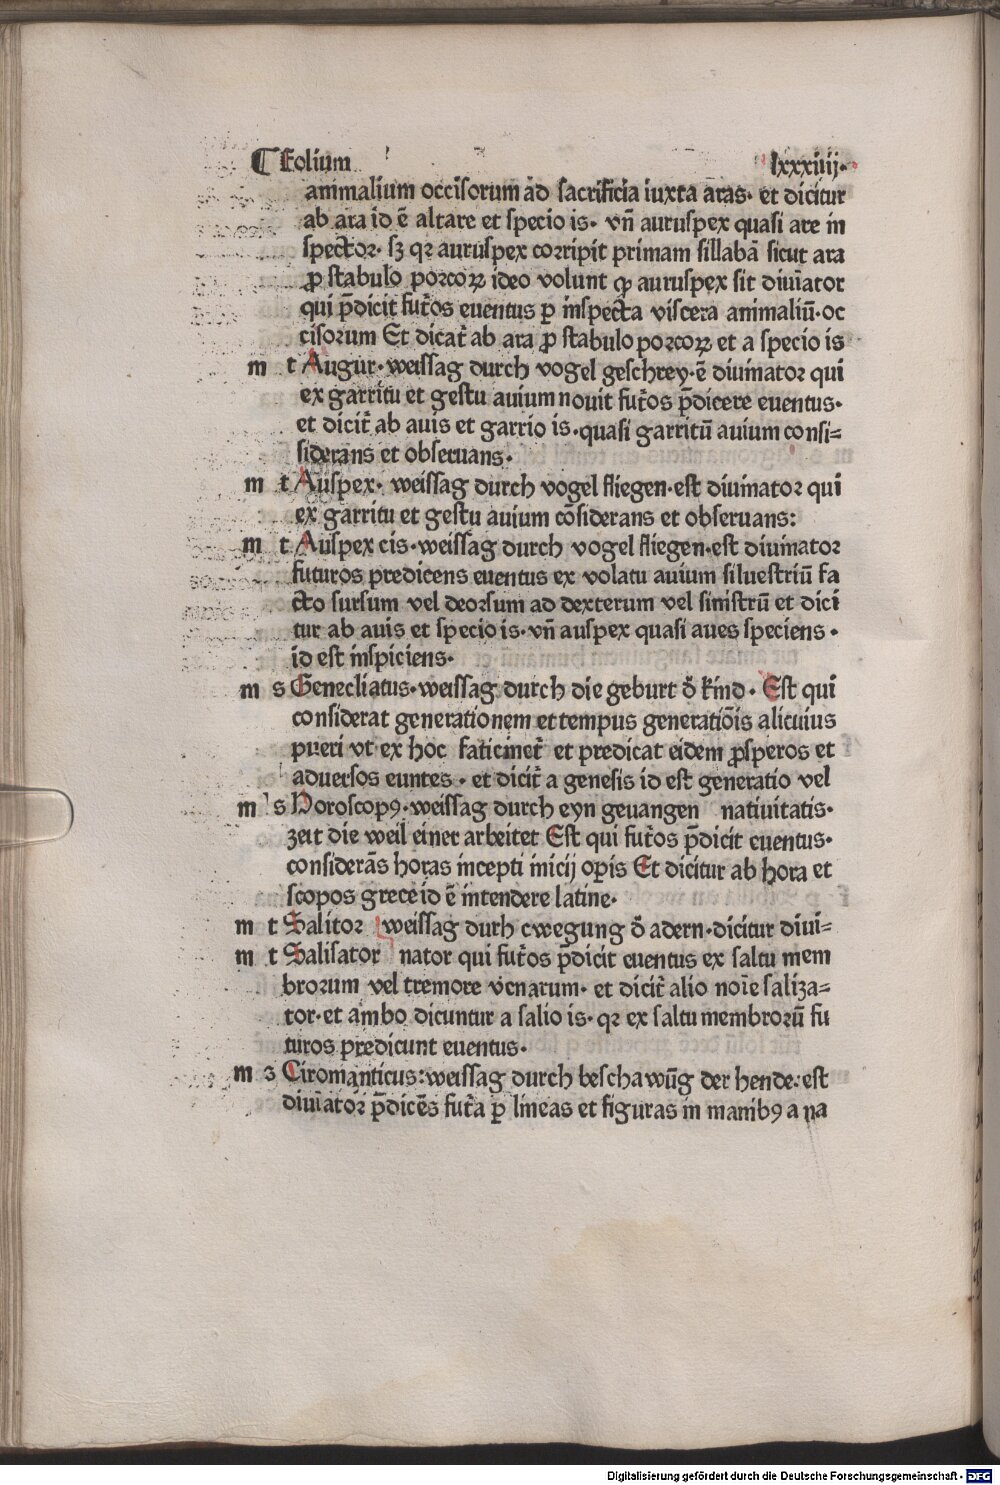 ¶ Folium lxxxiiij·
animalium occisorum ad sacrificia iuxta aras· et dicitur
ab ara id ē altare et specio is· vn̄ auruspex quasi are in
spector· sꝫ qꝛ auruspex corripit primam sillabā sicut ara
ꝓ stabulo porcoꝝ ideo volunt ꝙ auruspex sit diuinator
qui p̄dicit fut̄os euentus ꝑ inspecta viscera animaliū·oc
cisorum Et dicat̄ ab ara ꝓ stabulo porcoꝝ et a specio is
m t Augur· weissag durch vogel geschrey·ē diuinator qui
ex garritu et gestu auium nouit fut̄os p̄dicere euentus·
et dicit̄ ab auis et garrio is·quasi garritū auium consi⸗
siderans et obseruans·
m t Auspex· weissag durch vogel fliegen·est diuinator qui
ex garritu et gestu auium cōsiderans et obseruans:
m t Auspex cis·weissag durch vogel fliegen·est diuinator
futuros predicens euentus ex volatu auium siluestriū fa
cto sursum vel deorsum ad dexterum vel sinistrū et dici
tur ab auis et specio is· vn̄ auspex quasi aues speciens·
id est inspiciens·
m s Genecliatus·weissag durch die geburt d̄ kind· Est qui
considerat generationem et tempus generatiōis alicuius
pueri vt ex hoc faticinet̄ et predicat eidem ꝓsperos et
aduersos euntes· et dicit̄ a genesis id est generatio vel
m s Horoscopꝯ·weissag durch eyn geuangen natiuitatis·
zeit die weil einer arbeitet Est qui fut̄os p̄dicit euentus·
considerās horas incepti inicij oꝑis Et dicitur ab hora et
scopos grece id ē intendere latine·
m t Salitor weissag durh cwegung d̄ adern·dicitur diui⸗
m t Salisator nator qui fut̄os p̄dicit euentus ex saltu mem
brorum vel tremore venarum· et dicit̄ alio noīe saliza⸗
tor·et ambo dicuntur a salio is· qꝛ ex saltu membrorū fu
turos predicunt euentus·
m 3 Ciromanticus:weissag durch beschawūg der hende:est
diuiator p̄dicēs fut̄a ꝑ lineas et figuras in manibꝯ a na
Digitalisierung gefördert durch die Deutsche Forschungsgemeinschaft - DFG